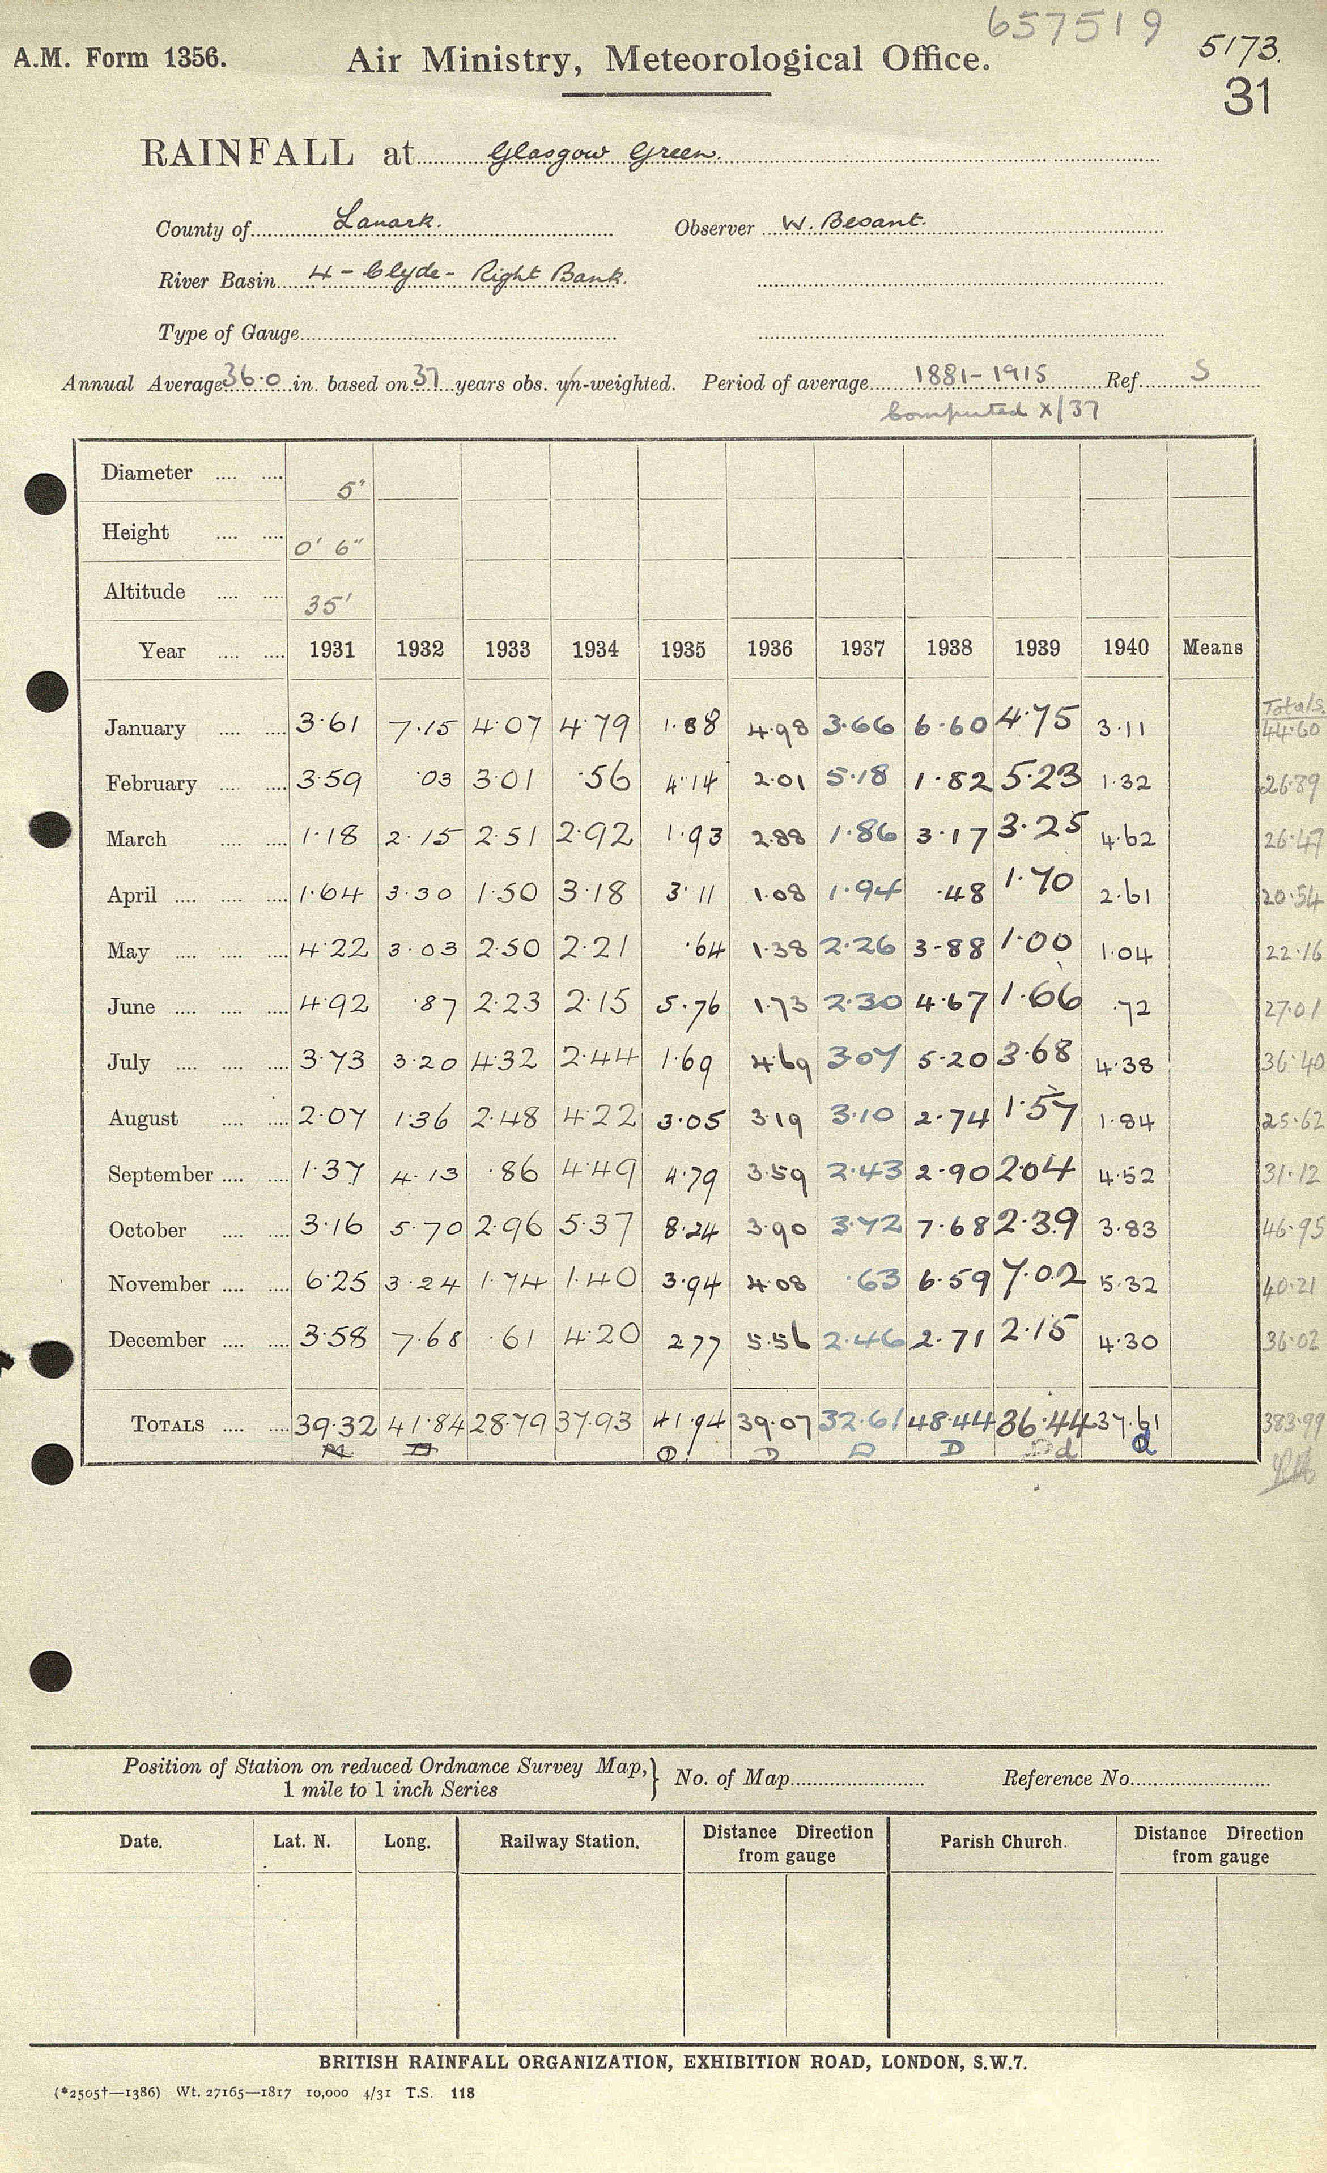 657519
A.M. Form 1356. Air Ministry, Meteorological Office. 5173.
31
RAINFALL at Glasgow Green.
County of Lanark. Observer W. Besant.
River Basin 4 - Clyde - Right Bank.
Type of Gauge
Annual Average 36.0 in. based on 37 years obs. un-weighted. Period of average 1881-1915 Ref. S
Computed X/37
Diameter 5"
Height 0' 6"
Altitude 35'
Year 1931 1932 1933 1934 1935 1936 1937 1938 1939 1940 Means
Totals
January 3.61 7.15 4.07 4.79 1.88 4.98 3.66 6.60 4.75 3.11 44.60
February 3.59 .03 3.01 .56 4.14 2.01 5.18 1.82 5.23 1.32 26.89
March 1.18 2.15 2.51 2.92 1.93 2.88 1.86 3.17 3.25 4.62 26.47
April 1.64 3.30 1.50 3.18 3.11 1.08 1.94 .48 1.70 2.61 20.54
May 4.22 3.03 2.50 2.21 .64 1.38 2.26 3.88 1.00 1.04 22.16
June 4.92 .87 2.23 2.15 5.76 1.73 2.30 4.67 1.66 .72 27.01
July 3.73 3.20 4.32 2.44 1.69 4.69 3.07 5.20 3.68 4.38 36.40
August 2.07 1.36 2.48 4.22 3.05 3.19 3.10 2.74 1.57 1.84 25.62
September 1.37 4.13 .86 4.49 4.79 3.59 2.43 2.90 2.04 4.52 31.12
October 3.16 5.70 2.96 5.37 8.24 3.90 3.72 7.68 2.39 3.83 46.95
November 6.25 3.24 1.74 1.40 3.94 4.08 .63 6.59 7.02 5.32 40.21
December 3.58 7.68 .61 4.20 2.77 5.56 2.46 2.71 2.15 4.30 36.02
TOTALS 39.32 41.84 28.79 37.93 41.94 39.07 32.61 48.44 36.44 37.61 383.99
D D D d d
Position of Station on reduced Ordnance Survey Map, } No. of Map Reference No.
1 mile to 1 inch Series
Date. Lat. N. Long. Railway Station. Distance Direction from gauge Parish Church. Distance Direction from gauge
BRITISH RAINFALL ORGANIZATION, EXHIBITION ROAD, LONDON, S.W.7.
(*2505†—1386) Wt. 27165—1817 10,000 4/31 T.S. 118